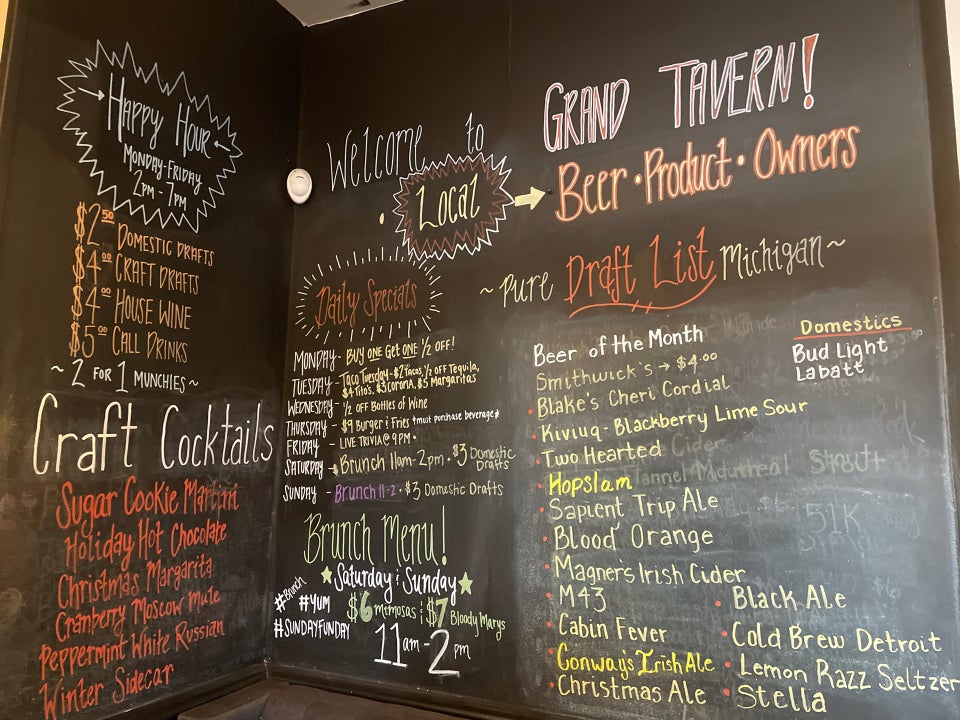 Happy Hour
Monday-Friday
2pm - 7pm
$2.50 Domestic Drafts
$4.00 Craft Drafts
$4.00 House Wine
$5.00 Call Drinks
~ 2 for 1 Munchies ~
Craft Cocktails
Sugar Cookie Martini
Holiday Hot Chocolate
Christmas Margarita
Cranberry Moscow Mule
Peppermint White Russian
Winter Sidecar
Welcome to
• Local
Daily Specials
Monday - Buy one Get one 1/2 off!
Tuesday - Taco Tuesday - $2 Tacos, 1/2 off Tequila,
$4 Tito's, $3 Corona, $5 Margaritas
Wednesday - 1/2 off Bottles of Wine
Thursday - $9 Burger & Fries *must purchase beverage*
Friday - Live Trivia @ 9pm •
Saturday - Brunch 11am-2pm • $3 Domestic
Drafts
Sunday - Brunch 11-2 • $3 Domestic Drafts
Brunch Menu!
Saturday & Sunday
#Brunch
#Yum
#SundayFunday
$6 Mimosas & $7 Bloody Marys
11am - 2pm
Grand Tavern!
Beer • Product • Owners
~ Pure Draft List Michigan ~
Beer of the Month
Smithwick's → $4.00
• Blake's Cheri Cordial
• Kiviuq - Blackberry Lime Sour
• Two Hearted
• Hopslam
• Sapient Trip Ale
• Blood Orange
• Magner's Irish Cider
• M43
• Cabin Fever
• Conway's Irish Ale
• Christmas Ale
• Black Ale
• Cold Brew Detroit
• Lemon Razz Seltzer
• Stella
Domestics
Bud Light
Labatt